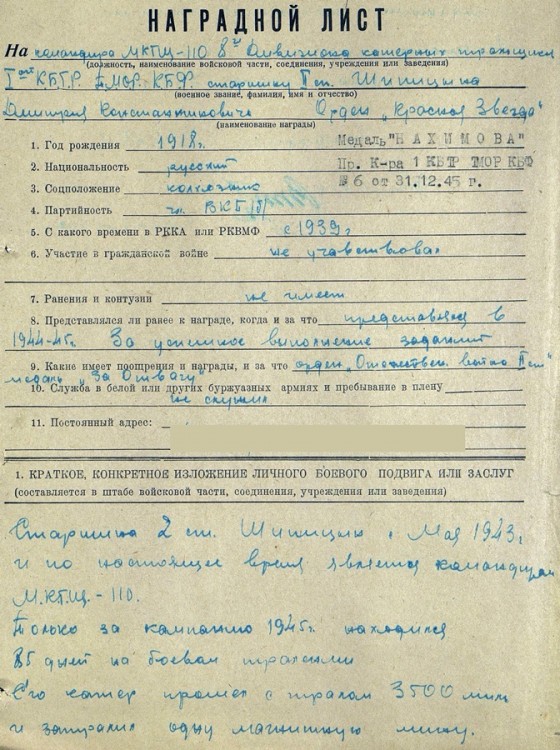 НАГРАДНОЙ ЛИСТ
На командира МКТЩ-110 8го Дивизиона катерных тральщиков
(должность, наименование войсковой части, соединения, учреждения или заведения)
КБТР. ТМОР. КБФ старшину 2 ст. Шипицына
(военное звание, фамилия, имя и отчество)
Дмитрия Константиновича Орден „Красная Звезда"
(наименование награды)
1. Год рождения 1918 г.
Медаль "НАХИМОВА"
2. Национальность русский
Пр. К-ра 1 КБТР ТМОР КБФ
3. Соцположение колхозник
№6 от 31.12.45 г.
4. Партийность чл. ВКП(б)
5. С какого времени в РККА или РКВМФ с 1939 г
6. Участие в гражданской войне не участвовал
7. Ранения и контузии не имеет
8. Представлялся ли ранее к награде, когда и за что представлялся в
1944-45г. За успешное выполнение заданий
9. Какие имеет поощрения и награды, и за что орден „Отечествен. война
медаль „За Отвагу"
10. Служба в белой или других буржуазных армиях и пребывание в плену
не служил
11. Постоянный адрес:
1. КРАТКОЕ, КОНКРЕТНОЕ ИЗЛОЖЕНИЕ ЛИЧНОГО БОЕВОГО ПОДВИГА ИЛИ ЗАСЛУГ
(составляется в штабе войсковой части, соединения, учреждения или заведения)
Старшина 2 ст. Шипицын с Мая 1943 г
и по настоящее время является командиром
М.КТЩ.-110.
Только за кампанию 1945г. находился
85 дней на боевом тралении
Его катер прошел с тралом 3500 миль
и затралил одну магнитную мину.